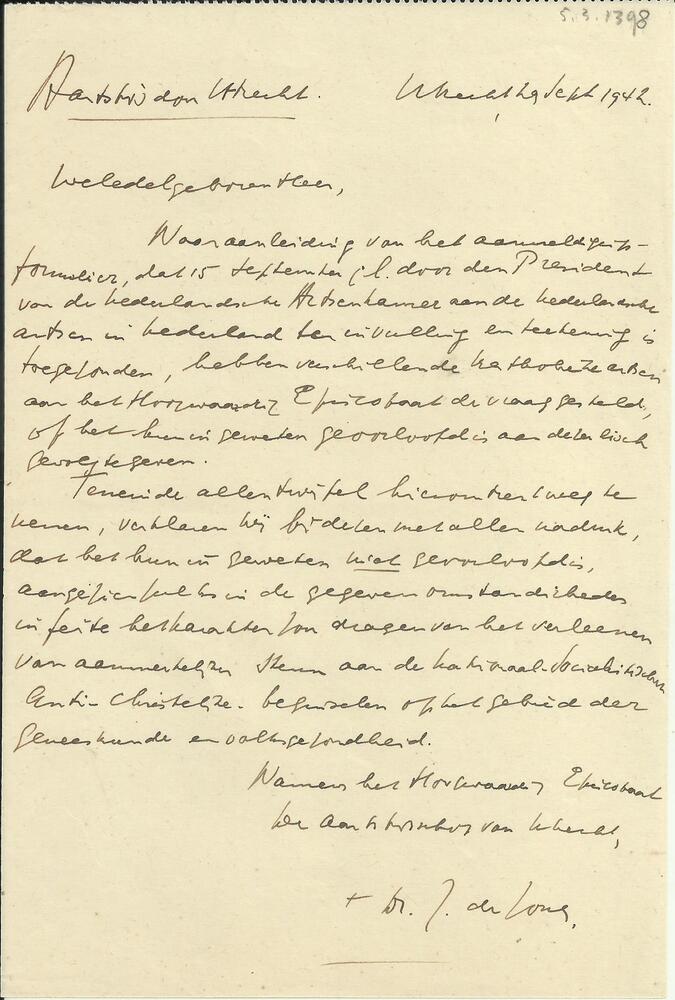 5.3.1398
Aartsbisdom Utrecht. Utrecht, 29 Sept 1942.
Weledelgeboren Heer,
Naar aanleiding van het aanmeldings-
formulier, dat 15 September j.l. door den President
van de Nederlandsche Artsenkamer aan de Nederlandsche
artsen in Nederland ter invulling en teekening is
toegezonden, hebben verschillende Katholieke artsen
aan het Hoogwaardig Episcopaat de vraag gesteld,
of het hun in geweten geoorloofd is aan dit verzoek
gevolg te geven.
Teneinde allen twijfel hieromtrent weg te
nemen, verklaren wij bij dezen met allen nadruk,
dat het hun in geweten niet geoorloofd is,
aangezien zulks in de gegeven omstandigheden
in feite het karakter zou dragen van het verleenen
van aanmerkelijken steun aan de nationaal-socialistische
Anti-Christelijke beginselen op het gebied der
geneeskunde en volksgezondheid.
Namens het Hoogwaardig Episcopaat
De Aartsbisschop van Utrecht,
+ Dr. J. de Jong.